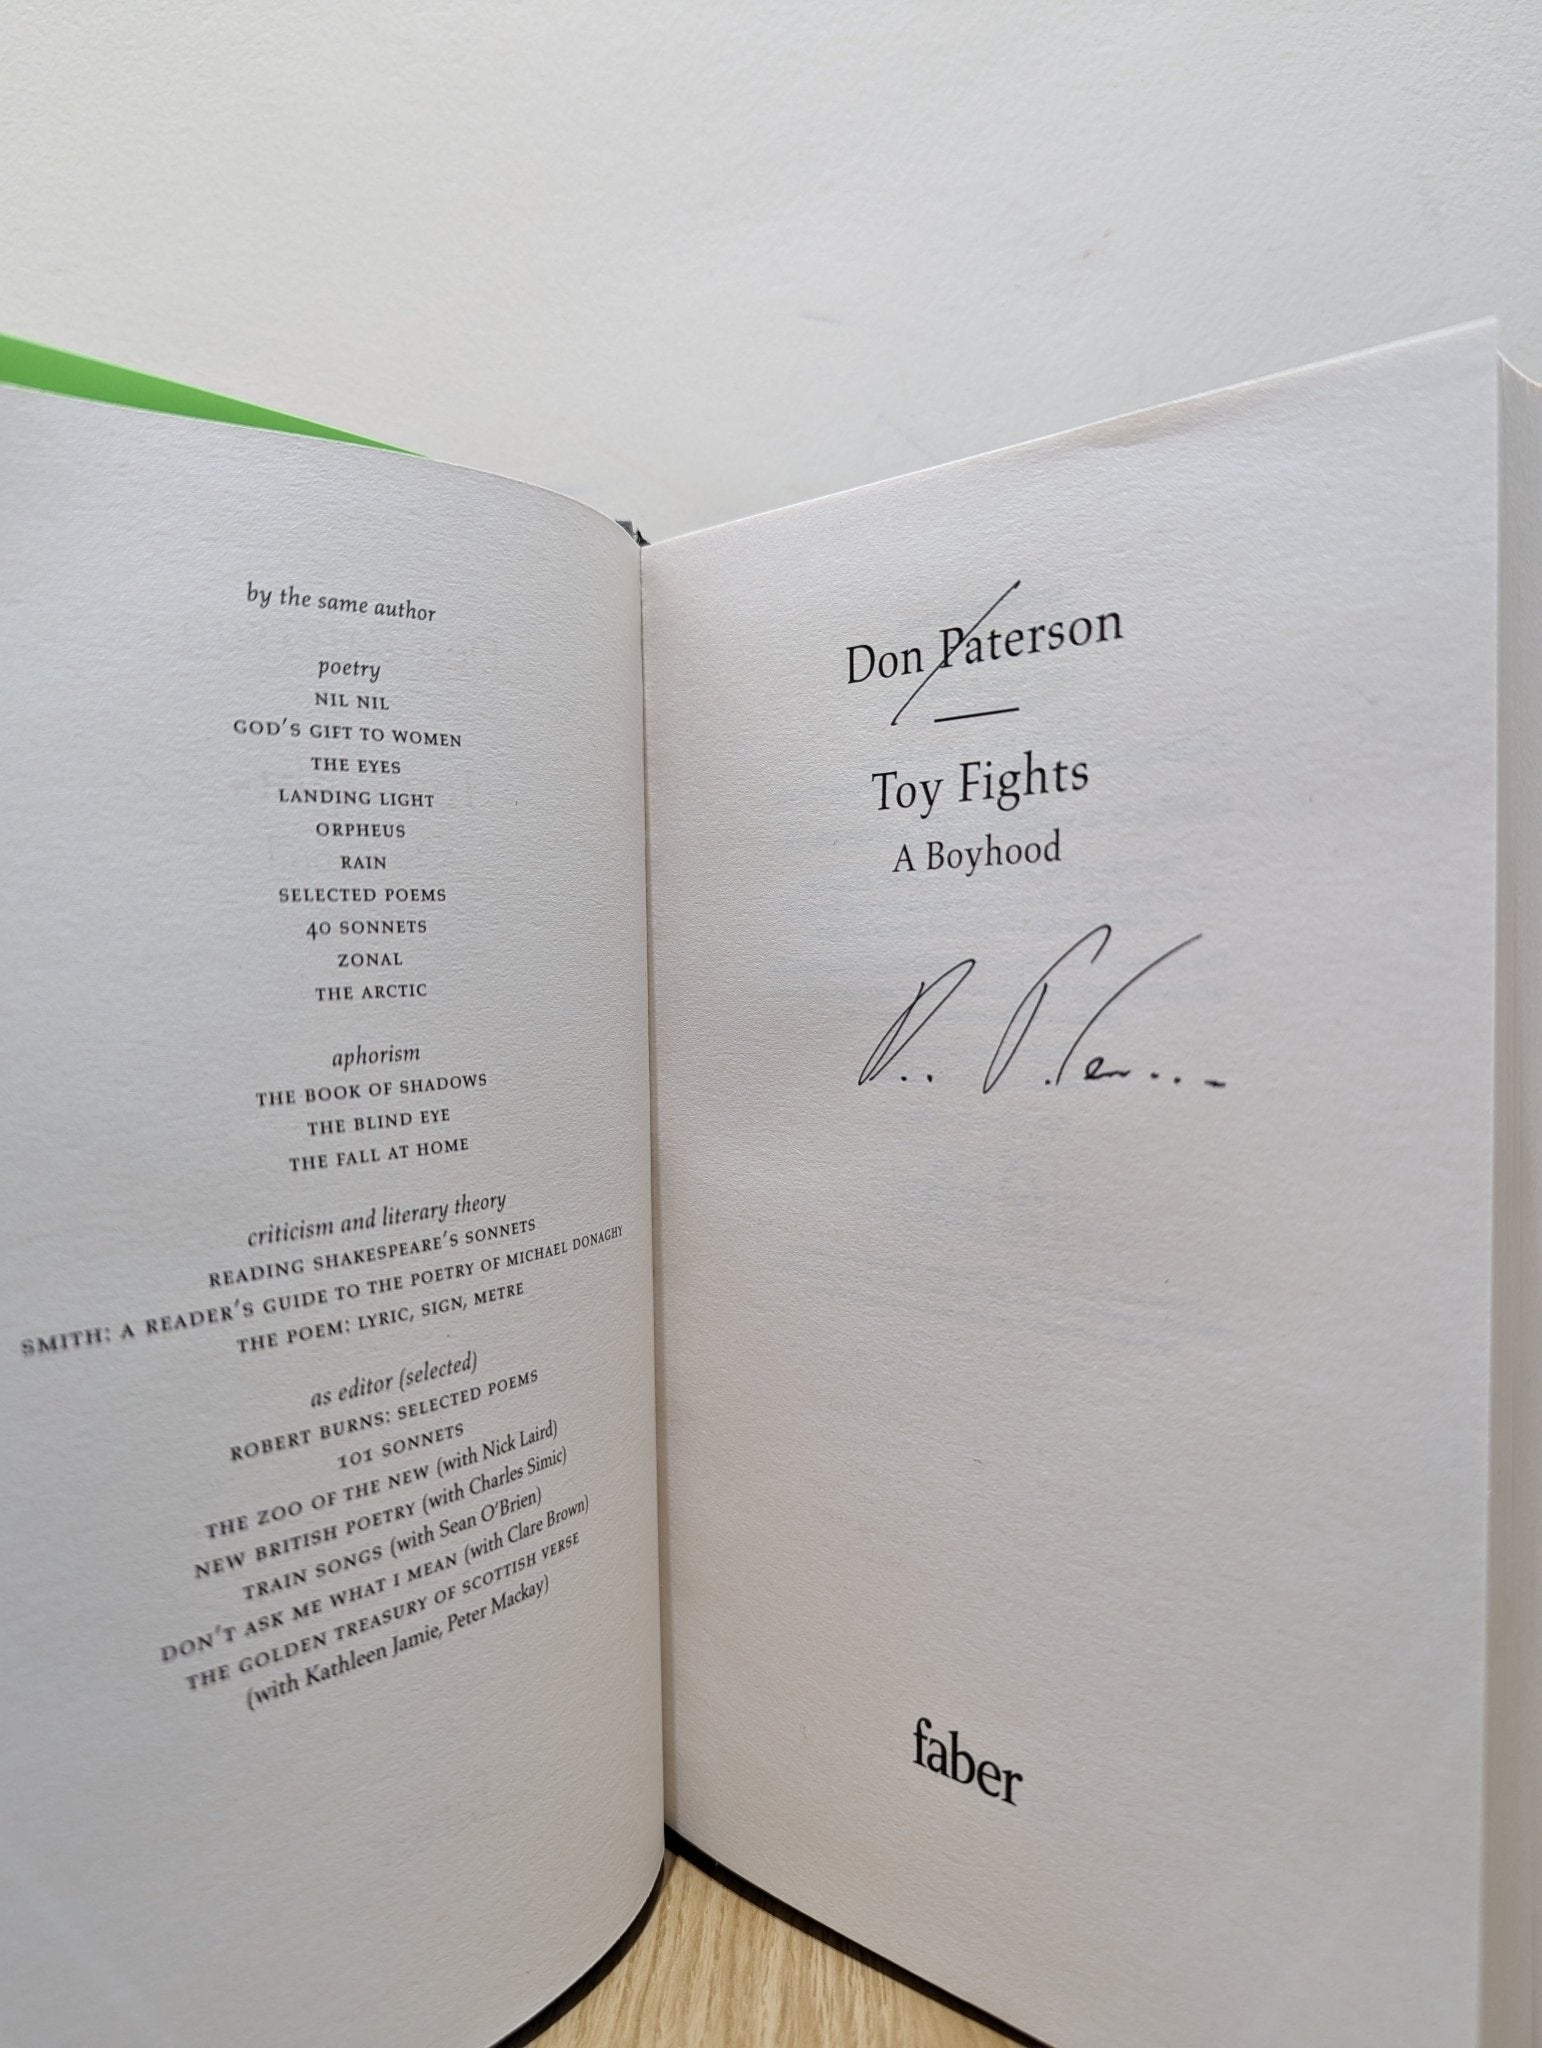 by the same author
poetry
NIL NIL
GOD'S GIFT TO WOMEN
THE EYES
LANDING LIGHT
ORPHEUS
RAIN
SELECTED POEMS
40 SONNETS
ZONAL
THE ARCTIC
aphorism
THE BOOK OF SHADOWS
THE BLIND EYE
THE FALL AT HOME
criticism and literary theory
READING SHAKESPEARE'S SONNETS
SMITH: A READER'S GUIDE TO THE POETRY OF MICHAEL DONAGHY
THE POEM: LYRIC, SIGN, METRE
as editor (selected)
ROBERT BURNS: SELECTED POEMS
101 SONNETS
THE ZOO OF THE NEW (with Nick Laird)
NEW BRITISH POETRY (with Charles Simic)
TRAIN SONGS (with Sean O'Brien)
DON'T ASK ME WHAT I MEAN (with Clare Brown)
THE GOLDEN TREASURY OF SCOTTISH VERSE
(with Kathleen Jamie, Peter Mackay)
Don Paterson
Toy Fights
A Boyhood
faber